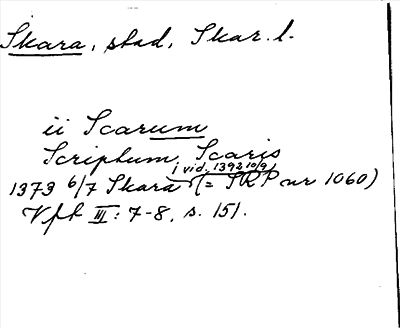 Skara, stad, Skar. l.
ii Scarum
Scriptum, Scaris
i vid. 1392 10/9
1373 6/7 Skara (= SRP nr 1060)
Vft III: 7-8, s. 151.